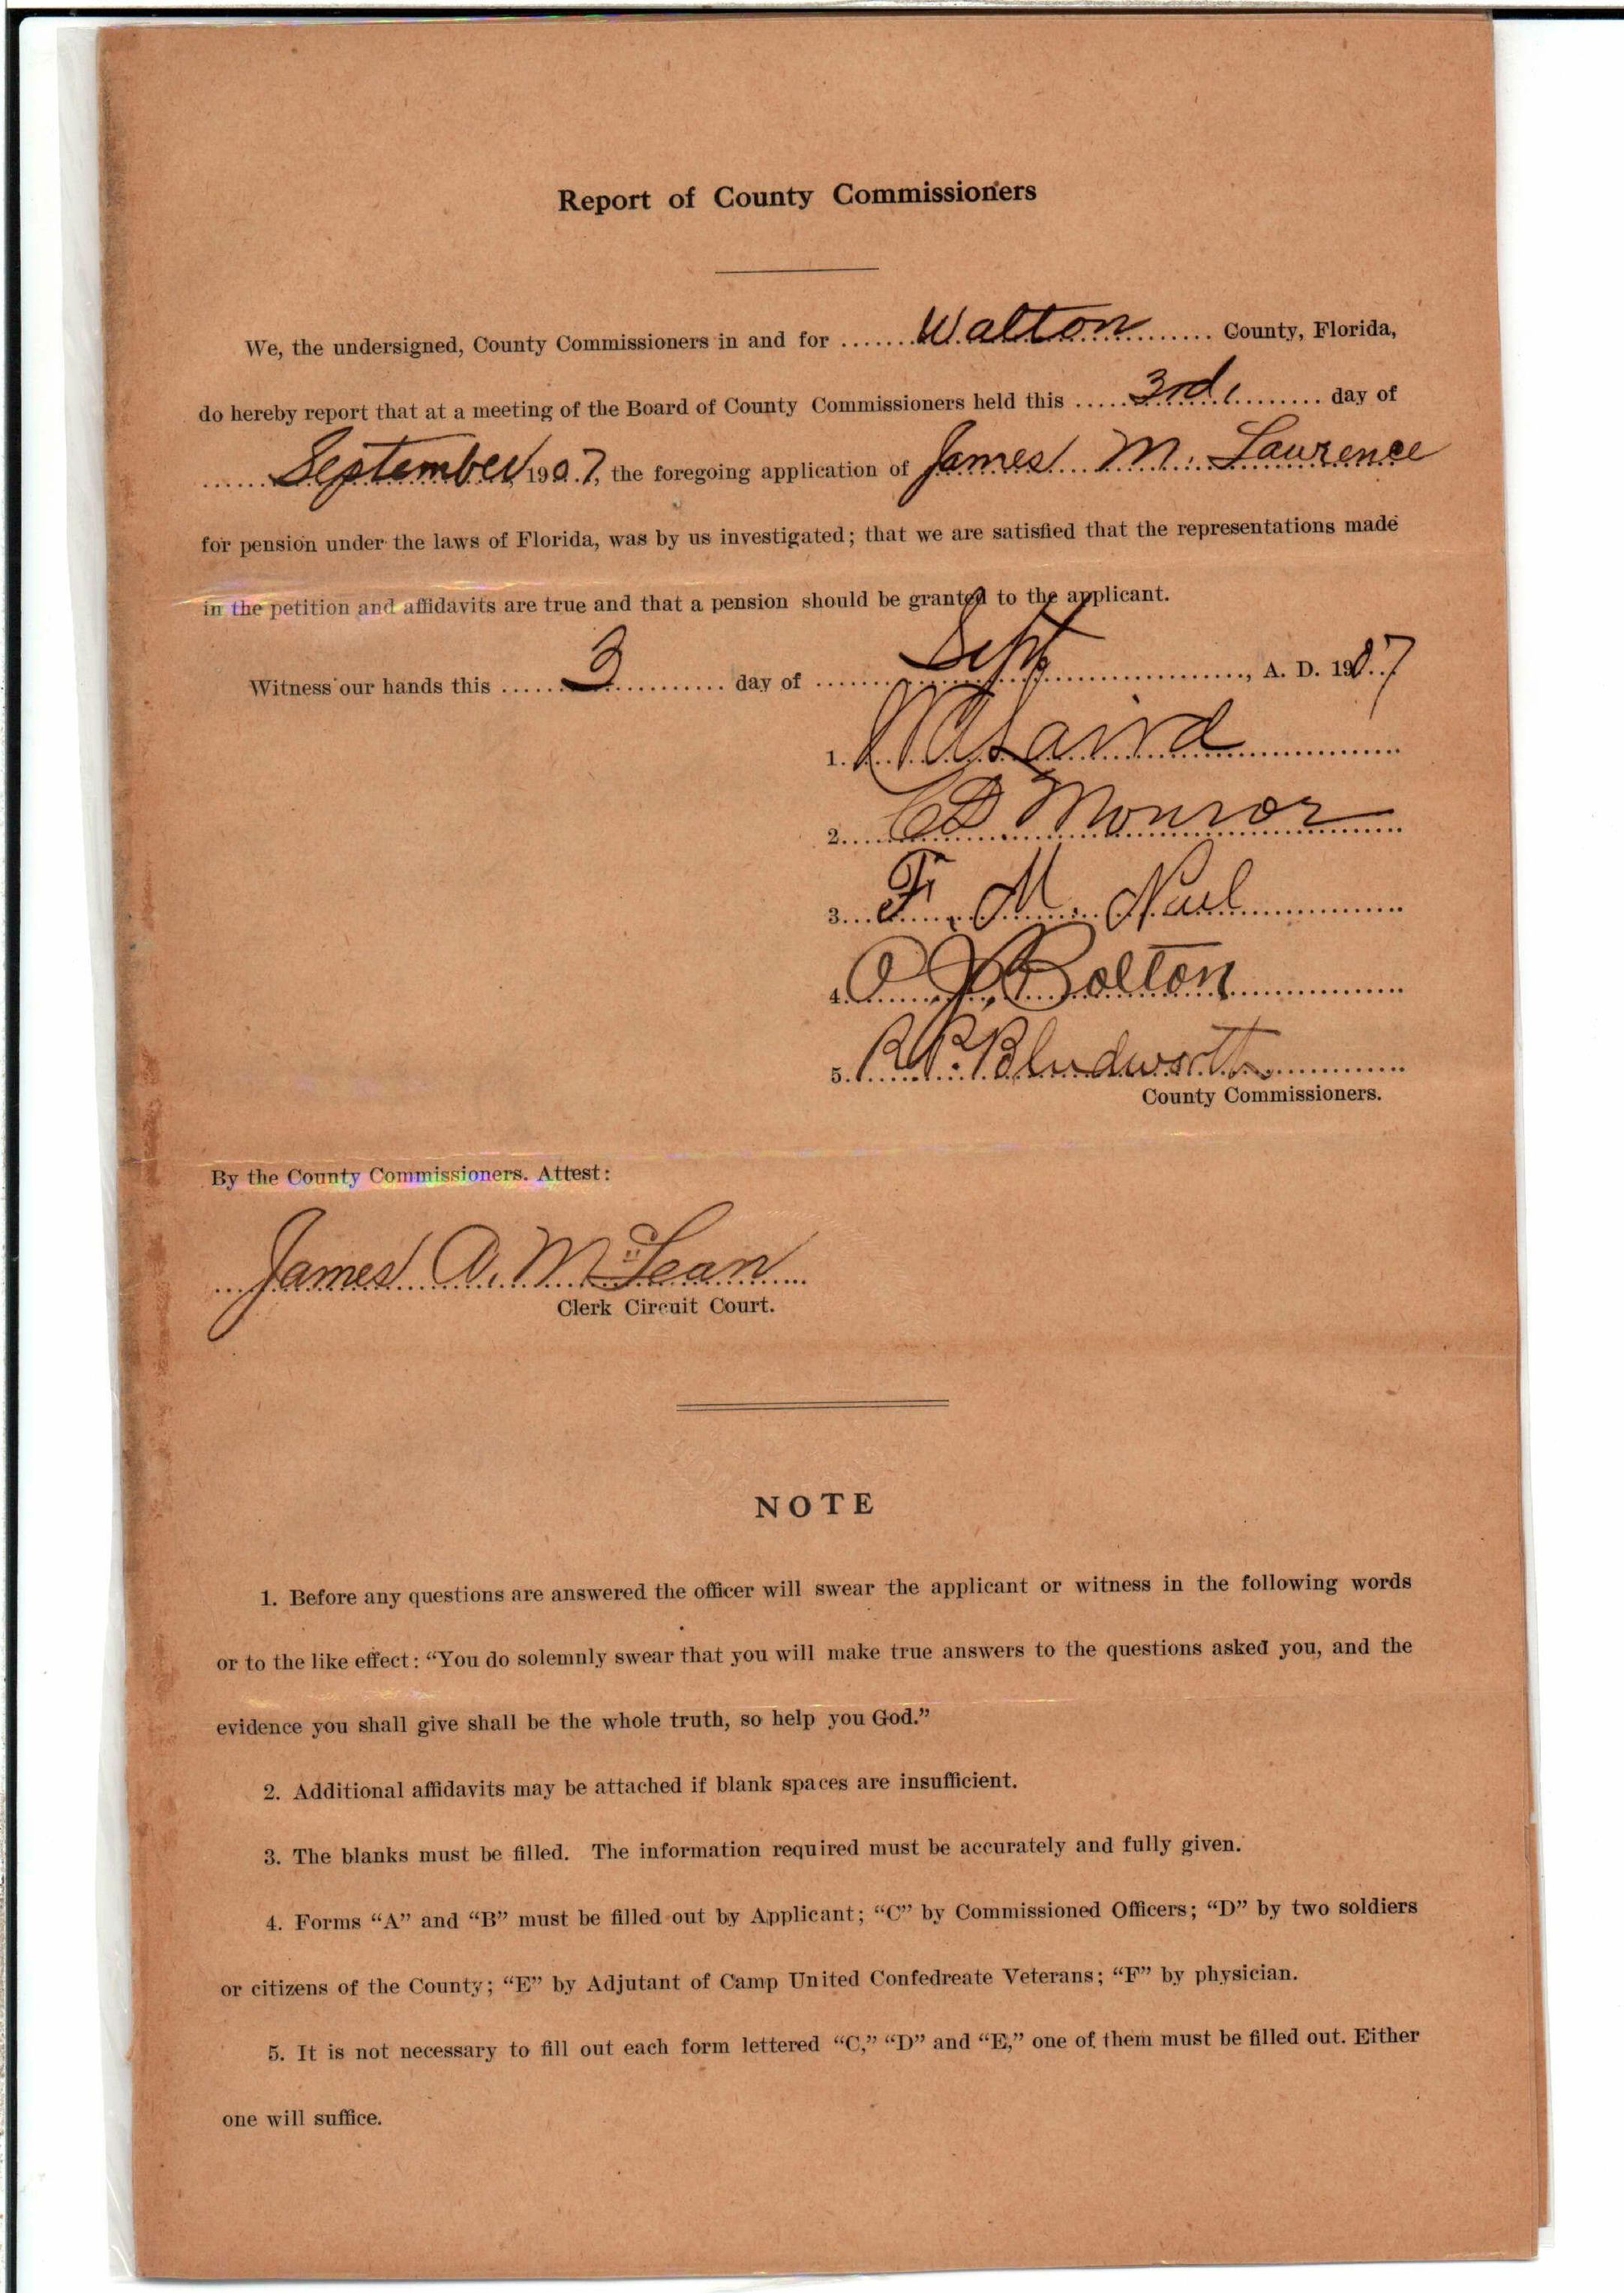 Report of County Commissioners
We, the undersigned, County Commissioners in and for ....... Walton ....... County, Florida,
do hereby report that at a meeting of the Board of County Commissioners held this ..... 3rd. ........ day of
...... September 1907, the foregoing application of James M. Lawrence
for pension under the laws of Florida, was by us investigated; that we are satisfied that the representations made
in the petition and affidavits are true and that a pension should be granted to the applicant.
Witness our hands this ..... 3 ........... day of ....... Sept ......................, A. D. 1907
1.
2. CD Monroe
3. F. M. Neel
4. O J Bolton
5. R.P. Bludworth
County Commissioners.
By the County Commissioners. Attest:
James A. McLean
Clerk Circuit Court.
NOTE
1. Before any questions are answered the officer will swear the applicant or witness in the following words
or to the like effect: “You do solemnly swear that you will make true answers to the questions asked you, and the
evidence you shall give shall be the whole truth, so help you God.”
2. Additional affidavits may be attached if blank spaces are insufficient.
3. The blanks must be filled. The information required must be accurately and fully given.
4. Forms “A” and “B” must be filled out by Applicant; “C” by Commissioned Officers; “D” by two soldiers
or citizens of the County; “E” by Adjutant of Camp United Confedreate Veterans; “F” by physician.
5. It is not necessary to fill out each form lettered “C,” “D” and “E,” one of them must be filled out. Either
one will suffice.